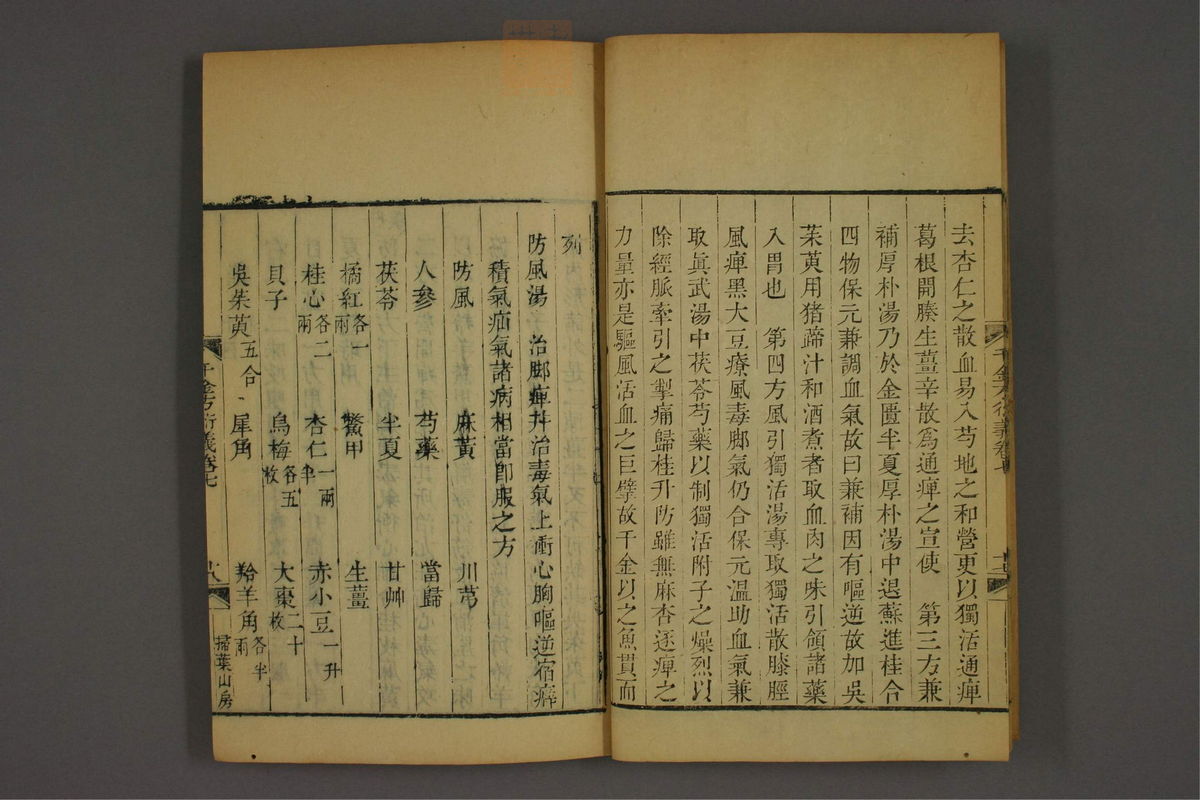 去杏仁之散血易入芍地之和營更以獨活通痺
葛根開腠生薑辛散為通痺之宣使　第三方兼
補厚朴湯乃於金匱半夏厚朴湯中退蘇進桂合
四物保元兼調血氣故曰兼補因有嘔逆故加吳
茱萸用猪蹄汁和酒煮者取血肉之味引領諸藥
入胃也　第四方風引獨活湯專取獨活散膝脛
風痺黑大豆療風毒脚氣仍合保元溫助血氣兼
取眞武湯中茯苓芍藥以制獨活附子之燥烈以
除經脈牽引之掣痛歸桂升防雖無麻杏逐痺之
力量亦是驅風活血之巨擘故千金以之魚貫而
列
防風湯　治脚痺并治毒氣上衝心胸嘔逆宿癖
積氣疝氣諸病相當卽服之方
防風　麻黃　川芎
人參　芍藥　當歸
茯苓　半夏　甘艸
橘紅各一兩　鱉甲　生薑
桂心各二兩　杏仁一兩半　赤小豆一升
貝子　烏梅各五枚　大棗二十枚
吳茱萸五合　犀角　羚羊角各半兩
千金方衍義卷七
八
掃葉山房